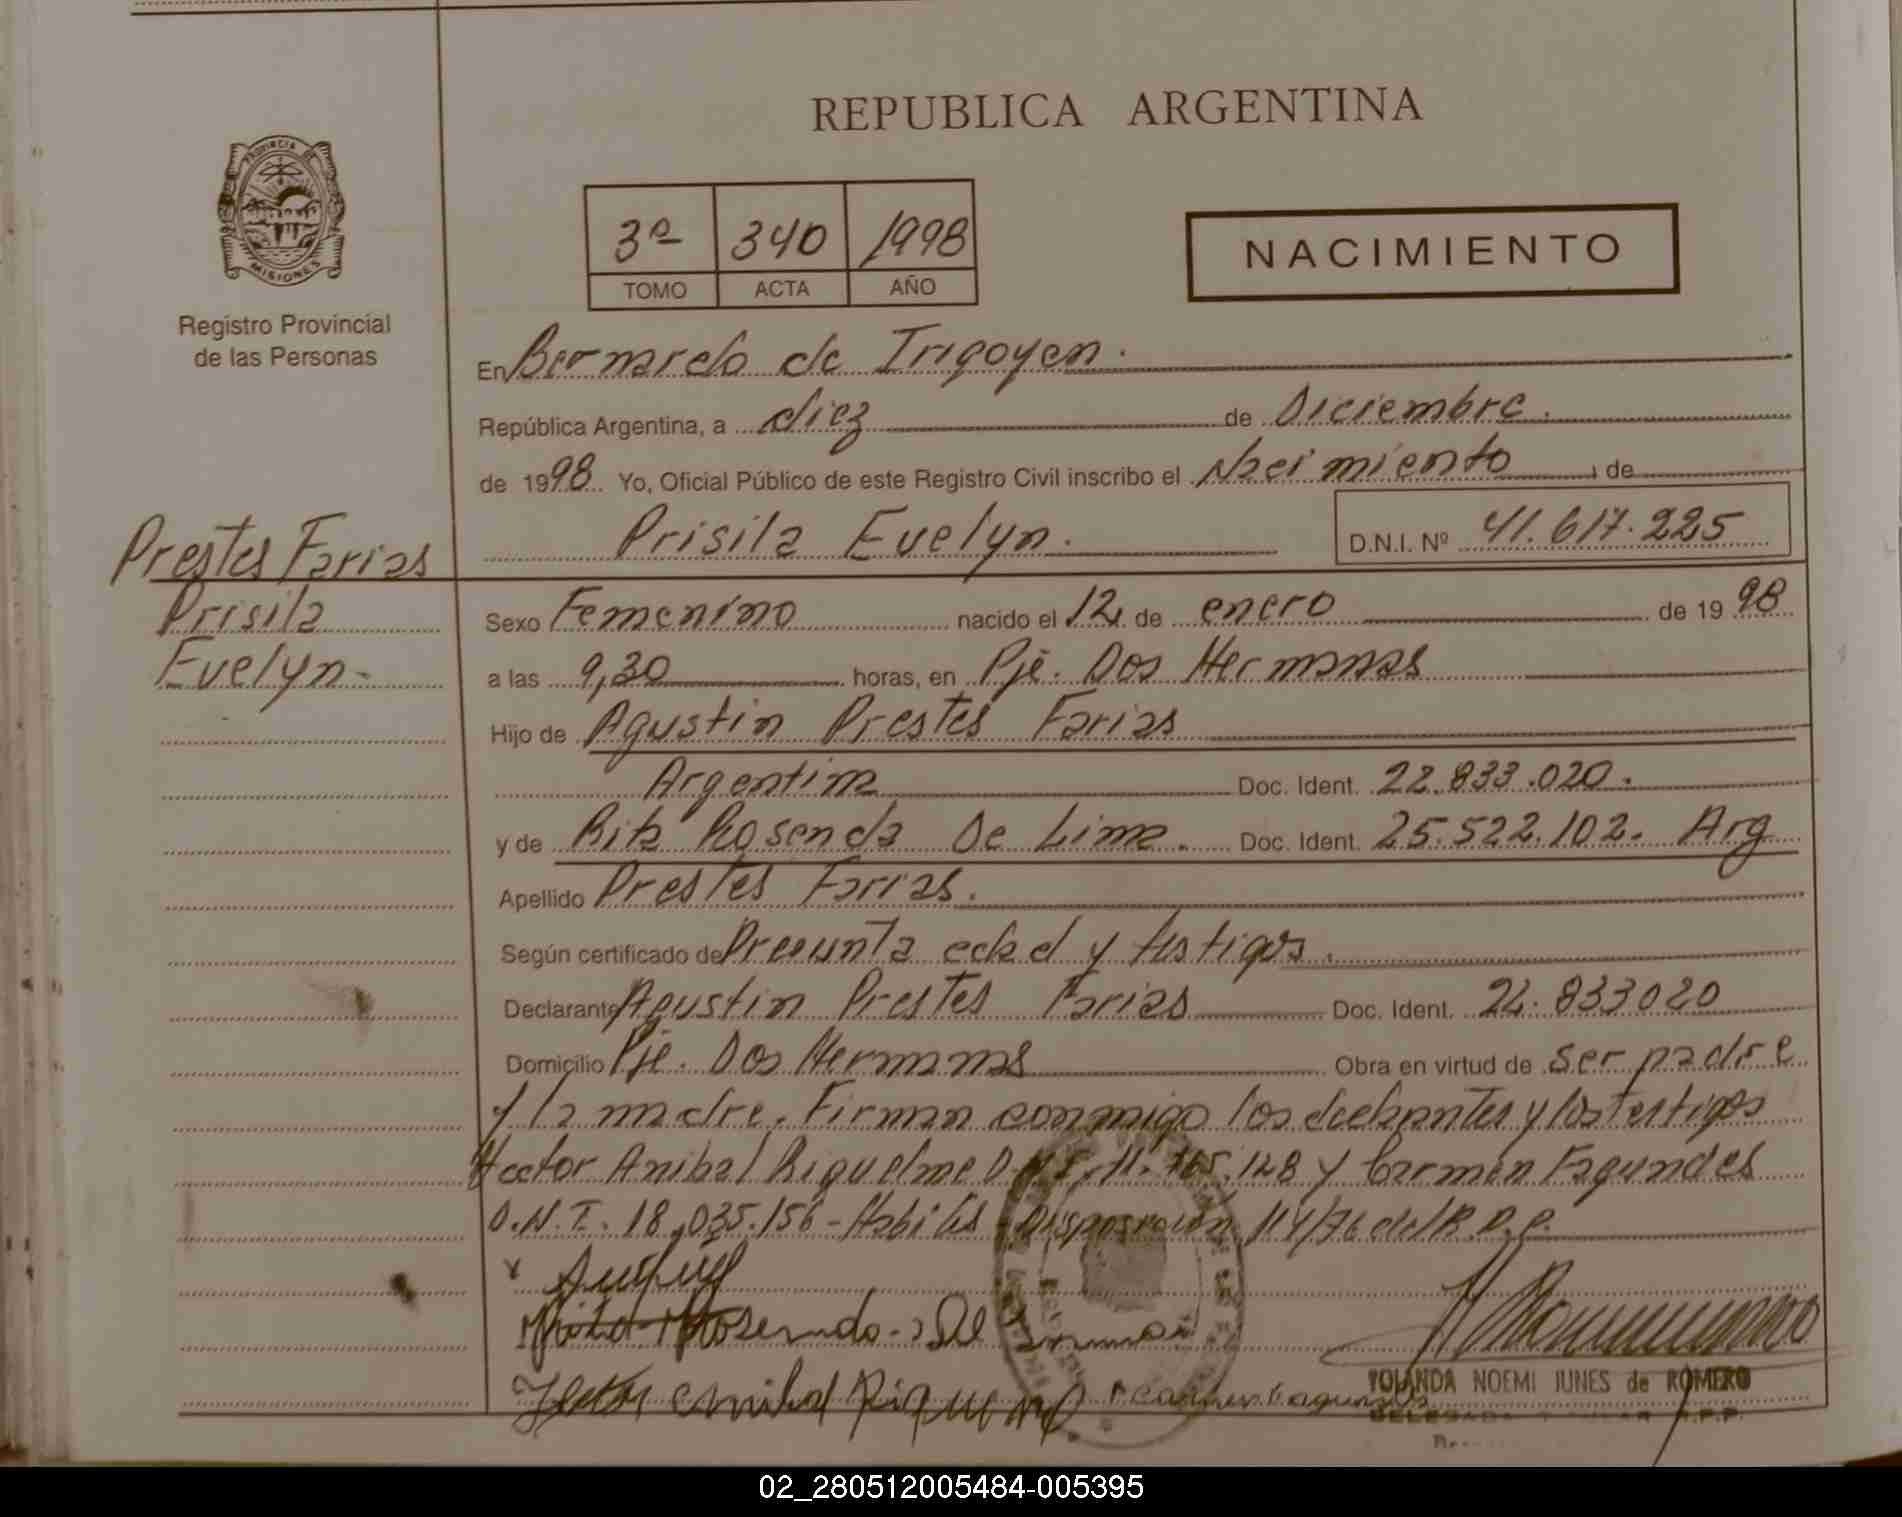 REPUBLICA ARGENTINA
PROVINCIA DE
MISIONES
Registro Provincial
de las Personas
3º 340 1998
TOMO ACTA AÑO
NACIMIENTO
En Bernardo de Irigoyen.
República Argentina, a diez de Diciembre.
de 1998 Yo, Oficial Público de este Registro Civil inscribo el Nacimiento de
Prisila Evelyn. D.N.I. Nº 41.617.225
Prestes Farias
Prisila
Evelyn-
Sexo Femenino nacido el 12 de enero de 1998
a las 9,30 horas, en Pje. Dos Hermanas
Hijo de Agustin Prestes Farias
Argentina Doc. Ident. 22.833.020.
y de Rita Rosenda De Lima. Doc. Ident. 25.522.102. Arg
Apellido Prestes Farias.
Según certificado de Presunta edad y testigos.
Declarante Agustin Prestes Farias Doc. Ident. 22.833020
Domicilio Pje. Dos Hermanas Obra en virtud de ser padre
y la madre. Firman conmigo los declarantes y los testigos
Hector Anibal Riquelme D.N.I. 11. 128 y Carmen Fagundes
D.N.I. 18.035.156 - Habiles - Disposicion 114/76 del R.P.P.
Rosenda De Lima
Riquelme
YOLANDA NOEMI JUNES de ROMERO
DELEGADA TITULAR R.P.P.
02_280512005484-005395